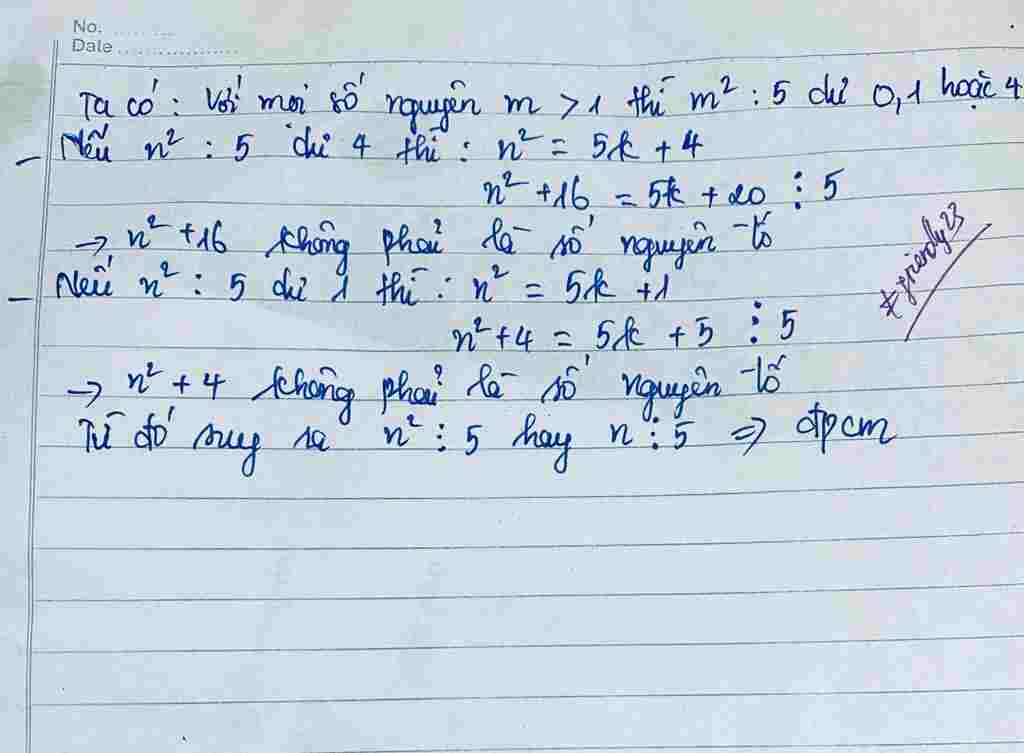 No. ........
Date ................
Ta có: Với mọi số nguyên m > 1 thì m² : 5 dư 0, 1 hoặc 4
- Nếu n² : 5 dư 4 thì : n² = 5k + 4
n² + 16 = 5k + 20 ⋮ 5
→ n² + 16 không phải là số nguyên tố
- Nếu n² : 5 dư 1 thì : n² = 5k + 1
n² + 4 = 5k + 5 ⋮ 5
→ n² + 4 không phải là số nguyên tố
Từ đó suy ra n² ⋮ 5 hay n ⋮ 5 => đpcm
#friendly23